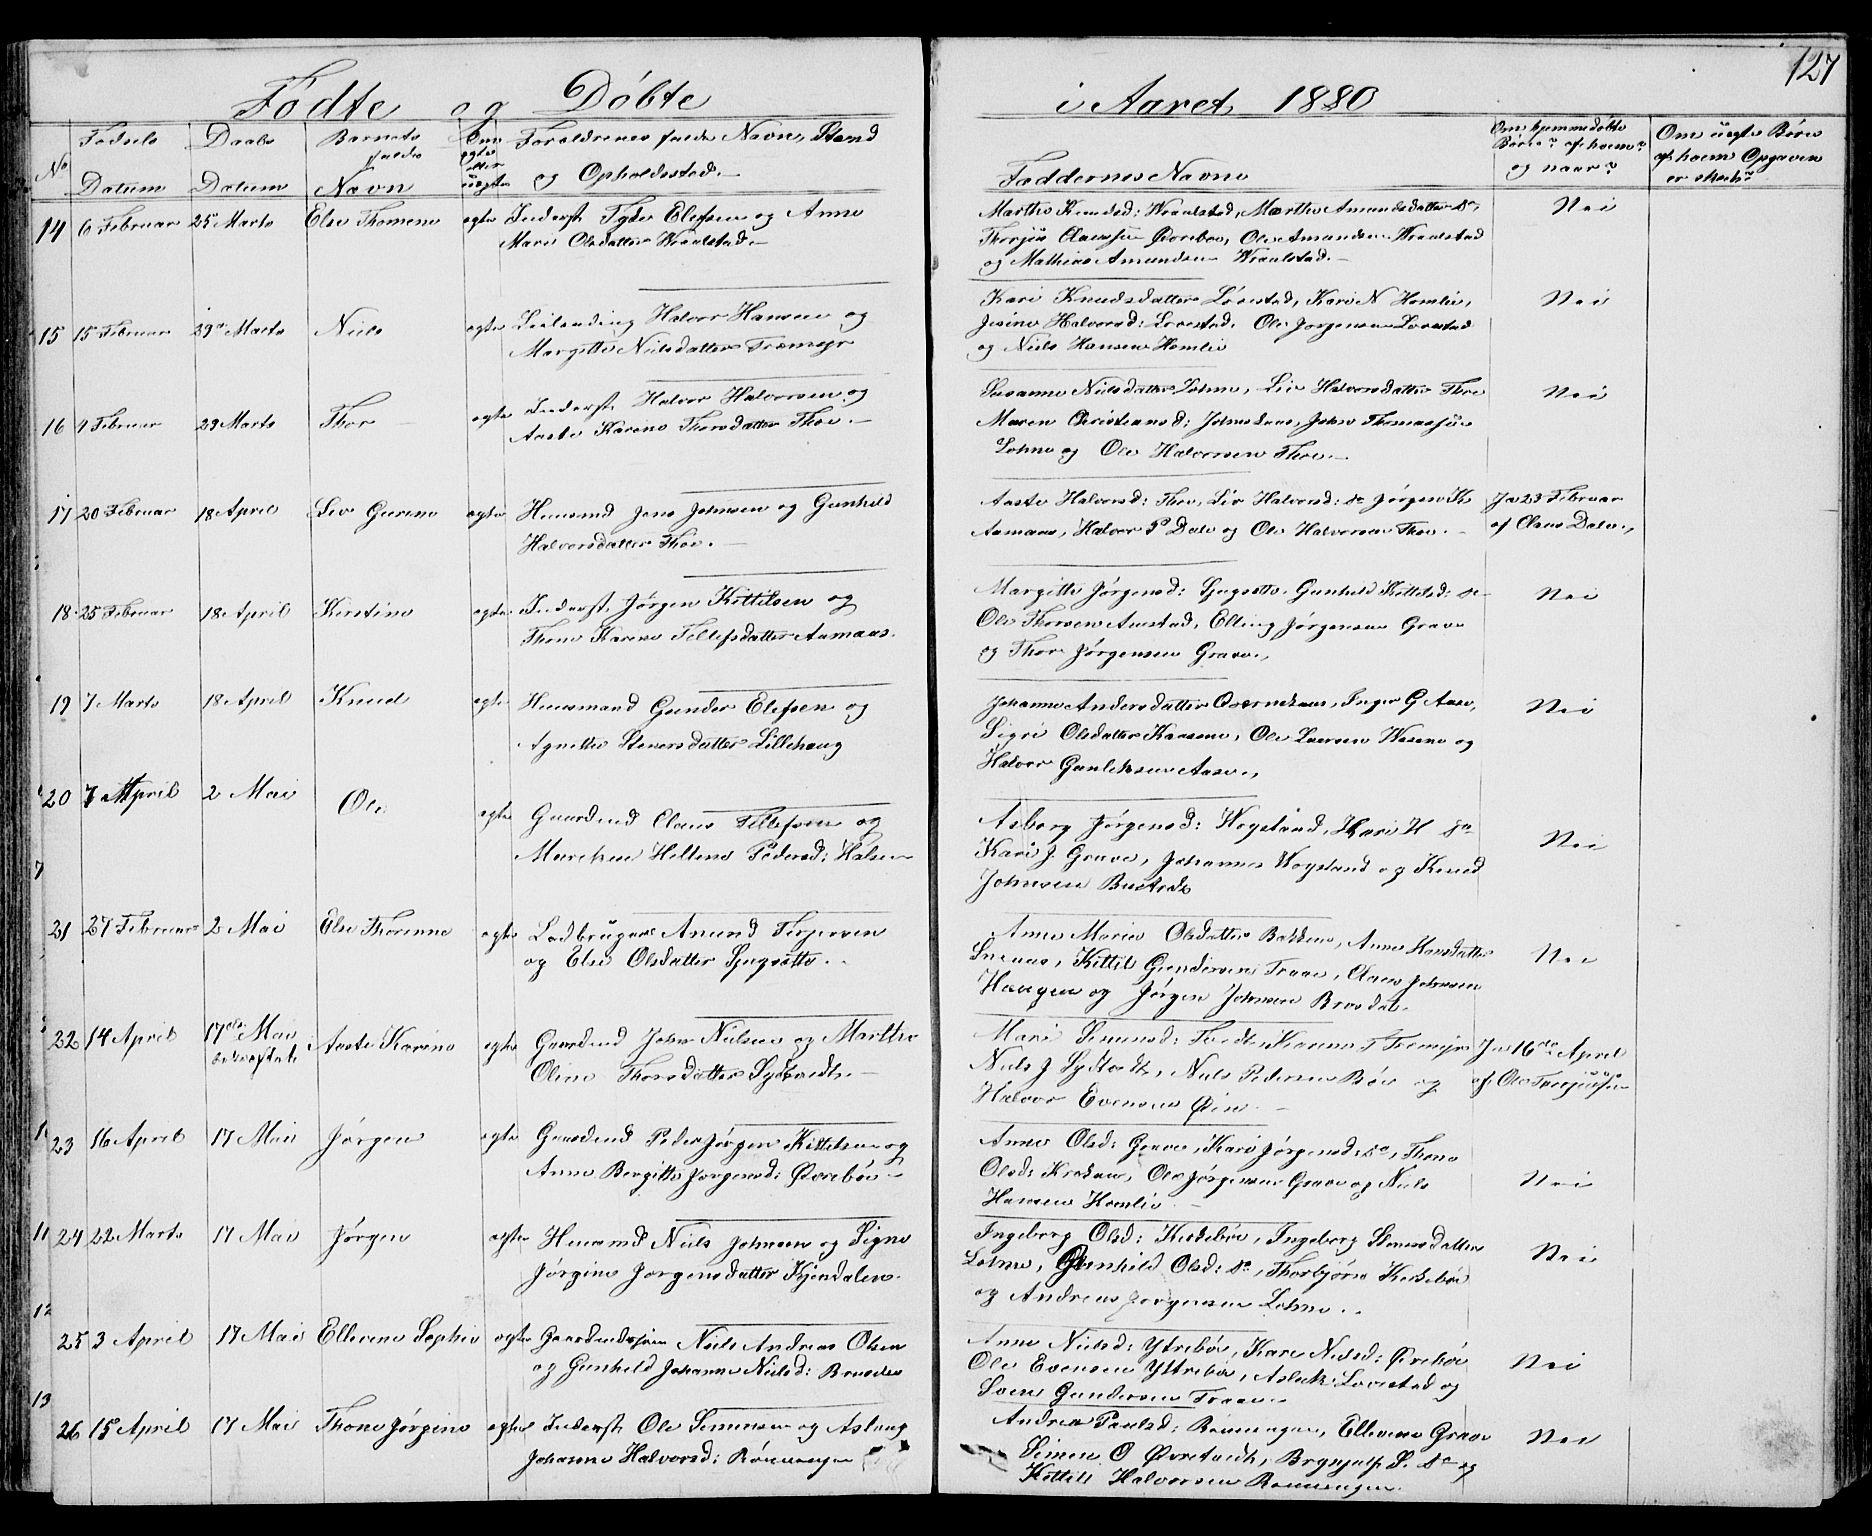 127
Fødte og Døbte i Aaret 1880
No
Fødsels Datum
Daabs Datum
Barnets fulde Navn
Om ægte eller uægte
Forældrenes fulde Navn, Stand og Opholdssted.
Faddernes Navne
Om hjemmedøbte Børn? af hvem? og naar?
Om uægte Børn af hvem Opgaven er skeet?
14 6 Februar 25 Marts Else Thomene ægte Inderst Tyde Elefsen og Anne
Mari Olsdatter Vraalstad.
Marthe Knudsd: Vraalstad, Marthe Amundsdatter do,
Thorjus Clausen Øvrebø, Ole Amundsen Vraalstad
og Mathias Amundsen Vraalstad.
Nei
15 15 Februar 29 Marts Niels ægte Leilending Halvor Hansen og
Margitte Nielsdatter Træmyr
Kari Knudsdatter Lovstad, Kari N Homlie,
Jesine Halvorsd: Lovstad, Ole Jørgensen Lovstad
og Niels Hansen Homlie
Nei
16 9 Februar 29 Marts Thor ægte Inderst Halvor Halvorsen og
Aaste Karene Thorsdatter Thoe.
Susanne Nielsdatter Lohne, Liv Halvorsdatter Thoe
Maren Christiansd: Johnslaas, John Thomassen
Lohne og Ole Halvorsen Thoe.
Nei
17 20 Februar 18 April Liv Gurine ægte Huusmd Jens Johnsen og Gunhild
Halvorsdatter Thoe.
Aaste Halvorsd: Thoe, Liv Halvorsd: do Jørgen K
Aamaas, Halvor P Dale og Ole Halvorsen Thoe.
Ja 23 Februar
af Claus Dale.
18 25 Februar 18 April Kirstine ægte Inderst Jørgen Kittilsen og
Thone Karene Tellefsdatter Aamaas.
Margitte Jørgensd: Gunhild Kittilsd: do
Ole Thorsen Aarstad, Elling Jørgensen Grave
og Thor Jørgensen Grave.
Nei
19 7 Marts 18 April Knud ægte Huusmand Gunder Elefsen og
Agnette Steners datter Lillehaug
Johanne Andersdatter Inger G Aase,
Sigri Olsdatter Ole Larsen og
Halvor Gunleksen Aase.
Nei
20 7 April 2 Mai Ole ægte Gaardmd Claus Tellefsen og
Marthea Heltene Pedersd: Halsen
Asborg Jørgensd: Vogsland, Kari H do
Kari J. Grave, Johannes Vogsland og Knud
Johnsen
Nei
21 27 Februar 2 Mai Else Thorenne ægte Ladbruger Amund Terjersen
og Else Olsdatter
Anne Marie Olsdatter Bakken, Anne Hansdatter
Kittil Gundersen Traae, Claus Johnsen
Haugen og Jørgen Johnsen Brosdal.
Nei
22 14 April 17de Mai Aaste Karine ægte Gaardmd John Nielsen og Marthe
Oline Thorsdatter Sydtvedt.
Mari Simensd: Tvedt, Karen T Træmyr
Niels J Sydtvedt, Niels Pedersen Bøe og
Halvor Evensen Øien.
Ja 16de April
af Ole
23 16 April 17 Mai Jørgen ægte Gaardmd Peder Jørgen Kittilsen og
Anne Bergitte Jørgensd: Øvrebøe
Anne Olsd: Grave, Kari Jørgensd: do, Thone
Olsd: Ole Jørgensen Grave og Niels
Hansen Homlie
Nei
24 22 Marts 17 Mai Jørgen ægte Huusmd Niels Johnsen og Signe
Jørgine Jørgensdatter Kjendalen.
Ingeborg Olsd: Kirkebøe, Ingeborg Stenersdatter
Lohne, Gunhild Olsd: do, Thorbjørn Kirkebøe
og Andreas Jørgensen Lohne.
Nei
25 3 April 17 Mai Ellevine Sophie ægte Gaardmdssøn Niels Andreas Olsen
og Gunhild Johanne Nielsd:
Anne Nielsd: Ytrebøe, Kari Nielsd: Ørebø
Ole Evensen Ytrebøe, Aslak Lovstad og
Sven Gundersen Traae.
Nei
26 15 April 17 Mai Thone Jørgine ægte Inderst Ole Simensen og Aslaug
Johanne Halvorsd: Rønningen
Andrea Paulsd: Rønningen, Ellevine Grave
Simen O Øvretvedt, Brynjulf S. do og
Kittil Halvorsen Rønningen.
Nei